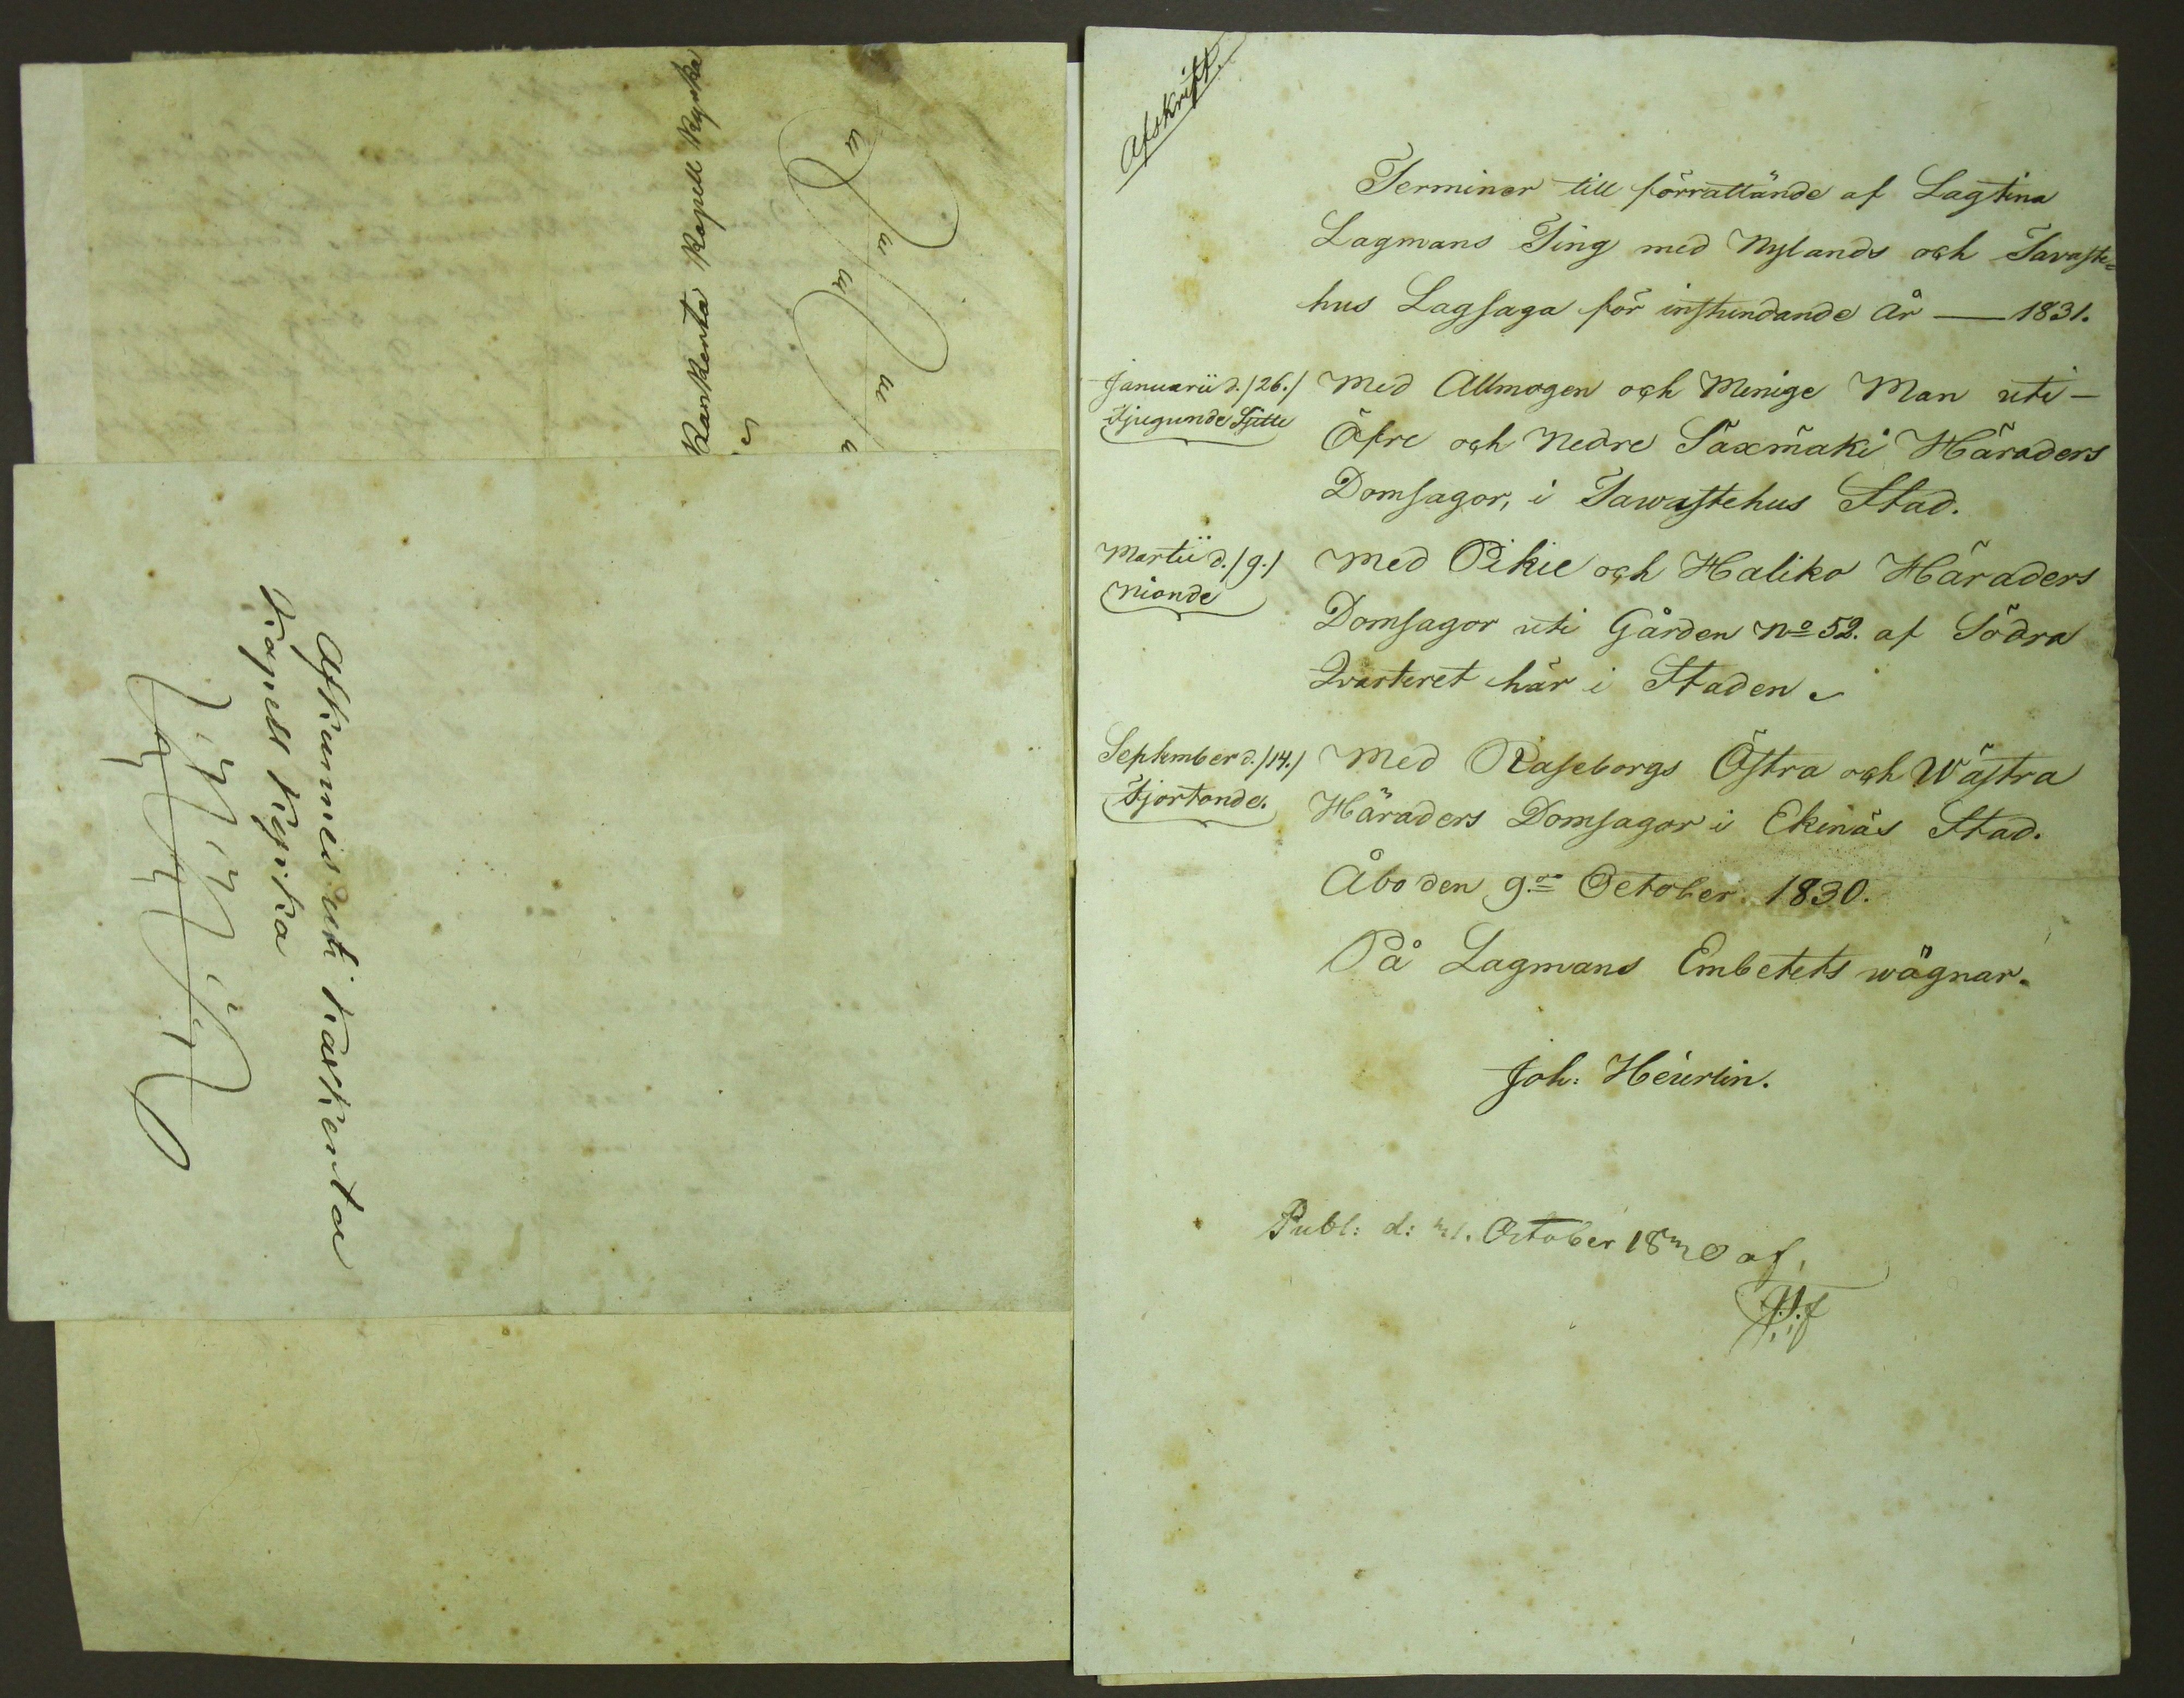 Karkkenta Kapell Kyrka
Afkunnes uti Karkenta
Kapell Kyrka
Afskrift.
Terminer till förrättande af Lagtina
Lagmans Ting med Nylands och Tavaste=
hus Lagsaga för instundande år — 1831.
Januarii d. /26./
Tjugunde Sjette
Med Allmogen och Menige Man uti —
Öfre och Nedre Säxmäki Häraders
Domsagor, i Tawastehus Stad.
Martii d. /9./
Nionde
Med Pikie och Haliko Häraders
Domsagor uti Gården No 52. af Södra
Qvarteret här i Staden.
September d. /14./
Fjortonde.
Med Raseborgs Östra och Wästra
Häraders Domsagor i Ekenäs Stad.
Åbo den 9de October 1830.
På Lagmans Embetets wägnar.
Joh: Heurlin.
Publ: d: 31. October 1830 af,